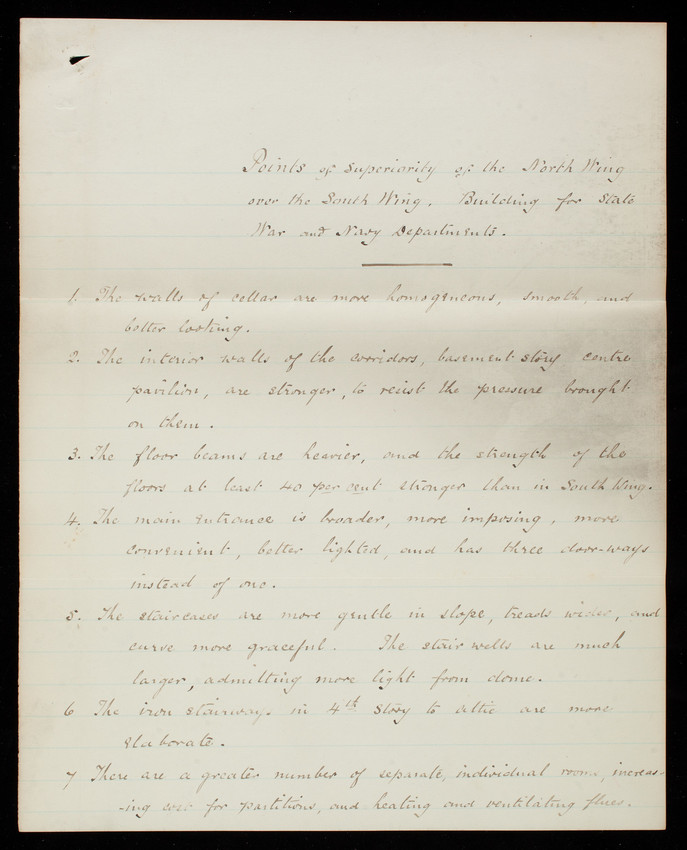 Points of Superiority of the North Wing
over the South Wing. Building for State
War and Navy Departments.
1. The walls of cellar are more homogeneous, smooth, and
better looking.
2. The interior walls of the corridors, basement story centre
pavilion, are stronger, to resist the pressure brought
on them.
3. The floor beams are heavier, and the strength of the
floors at least 40 per cent stronger than in South Wing.
4. The main entrance is broader, more imposing, more
convenient, better lighted, and has three door-ways
instead of one.
5. The staircases are more gentle in slope, treads wider, and
curve more graceful. The stair wells are much
larger, admitting more light from dome.
6 The iron stairways in 4th Story to attic are more
elaborate.
7 There are a greater number of separate, individual rooms, increas-
-ing cost for partitions, and heating and ventilating flues.